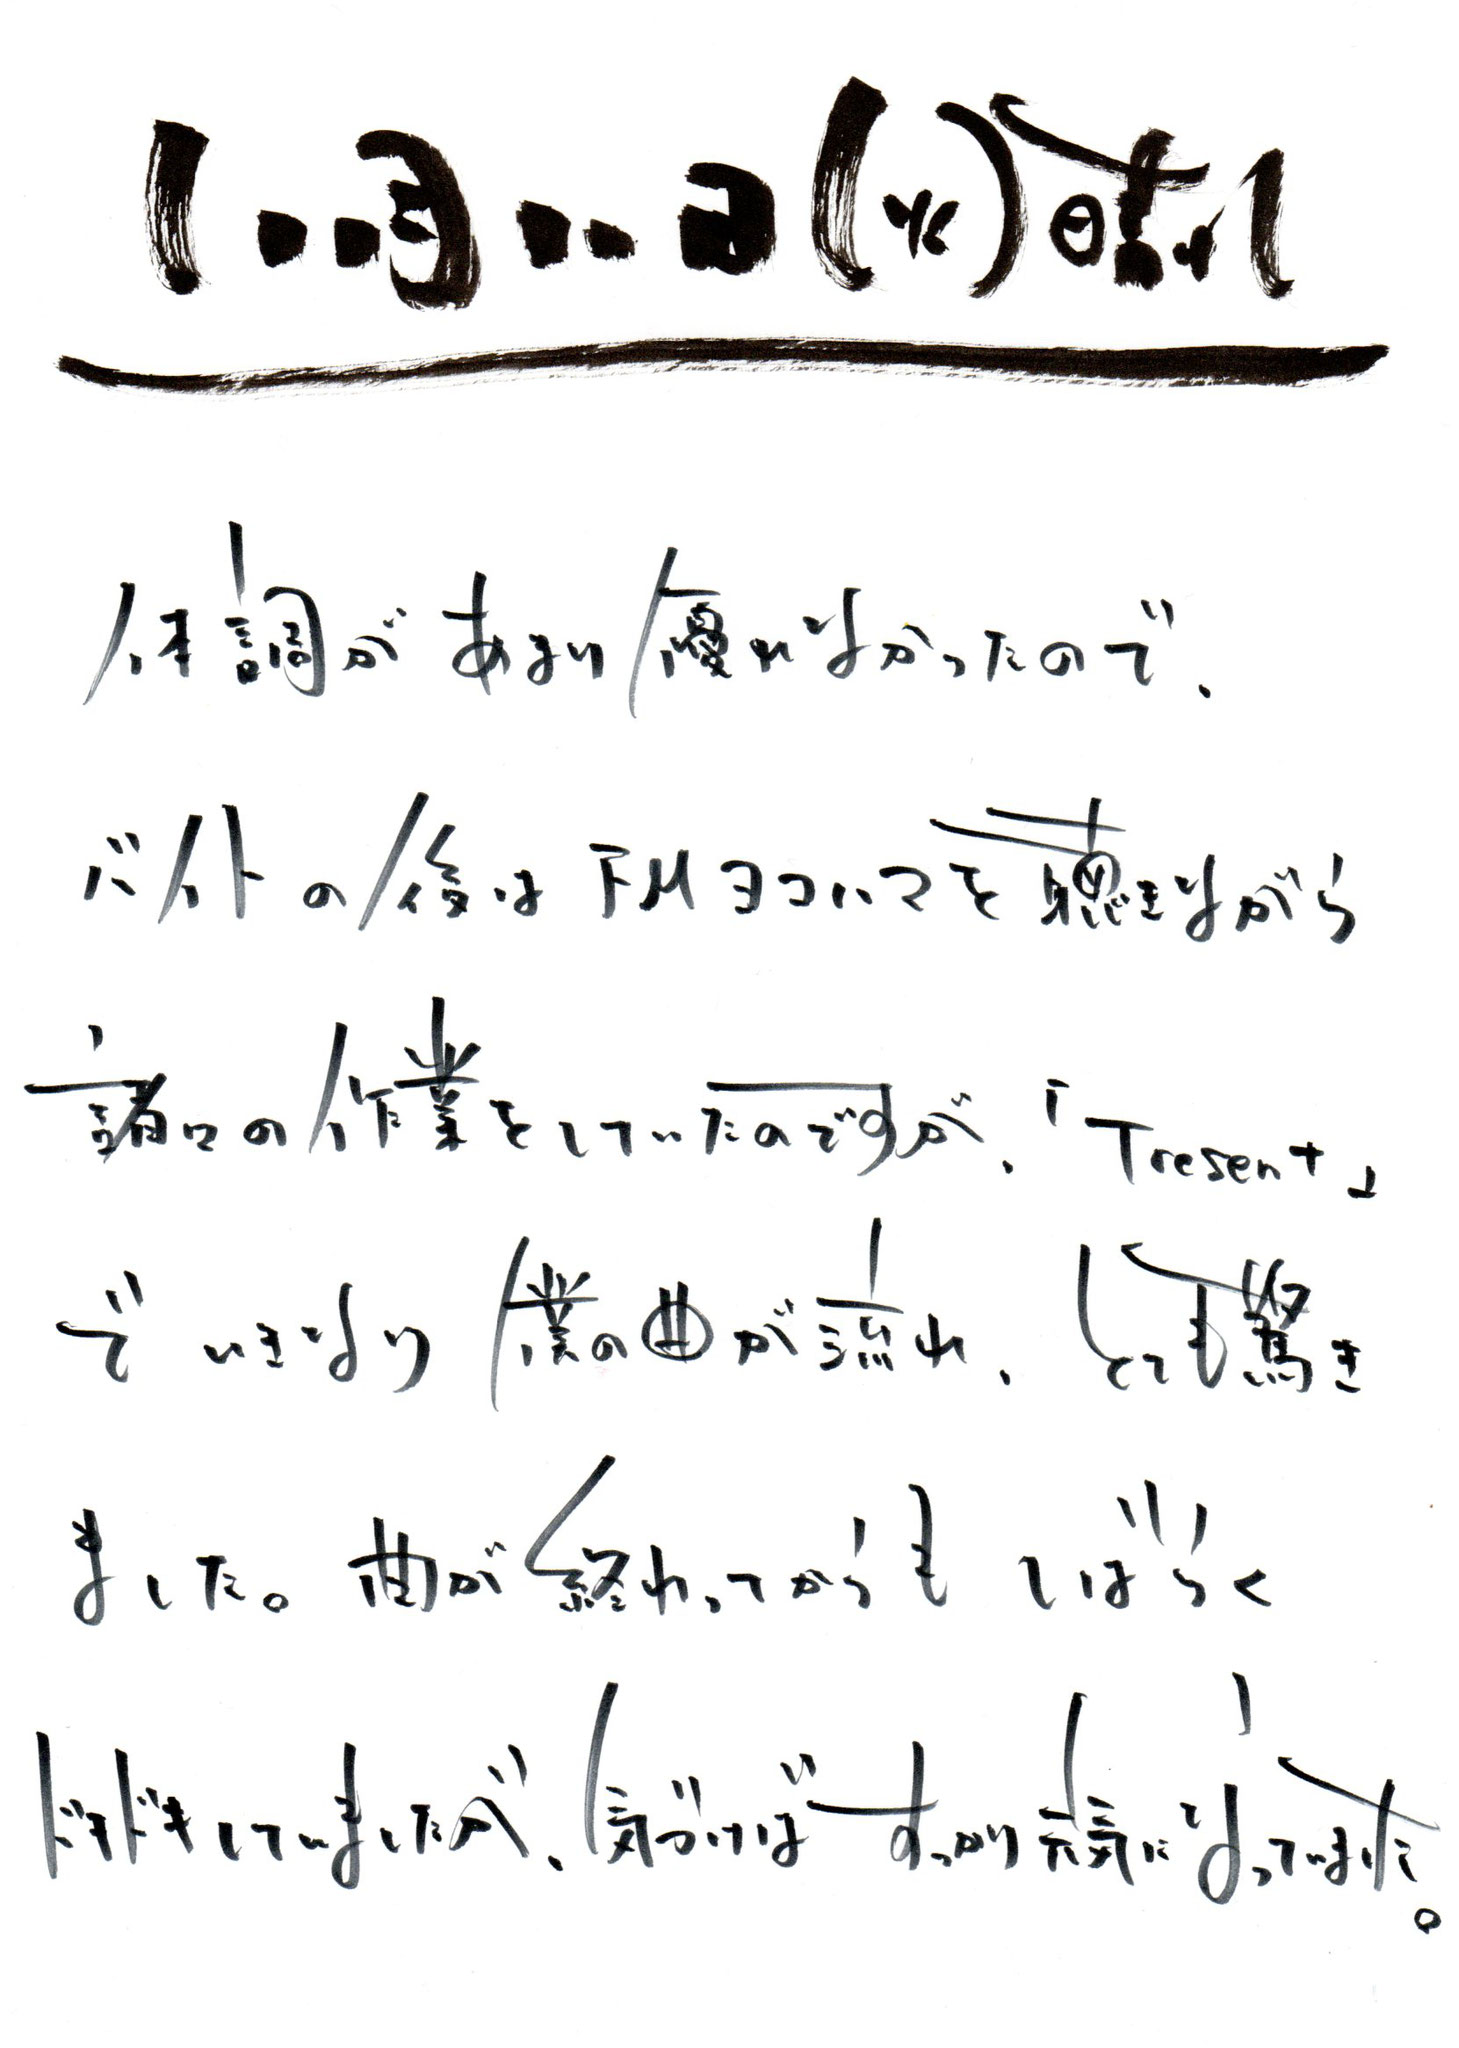 月 日 晴れ
体調があまり優れなかったので、
バイトの後はFMヨコハマを聴きながら
諸々の作業をしていたのですが、「Tresen+」
でいきなり僕の曲が流れ、とても驚き
ました。曲が終わってからもしばらく
ドキドキしていましたが、気づけばすっかり元気になっていました。